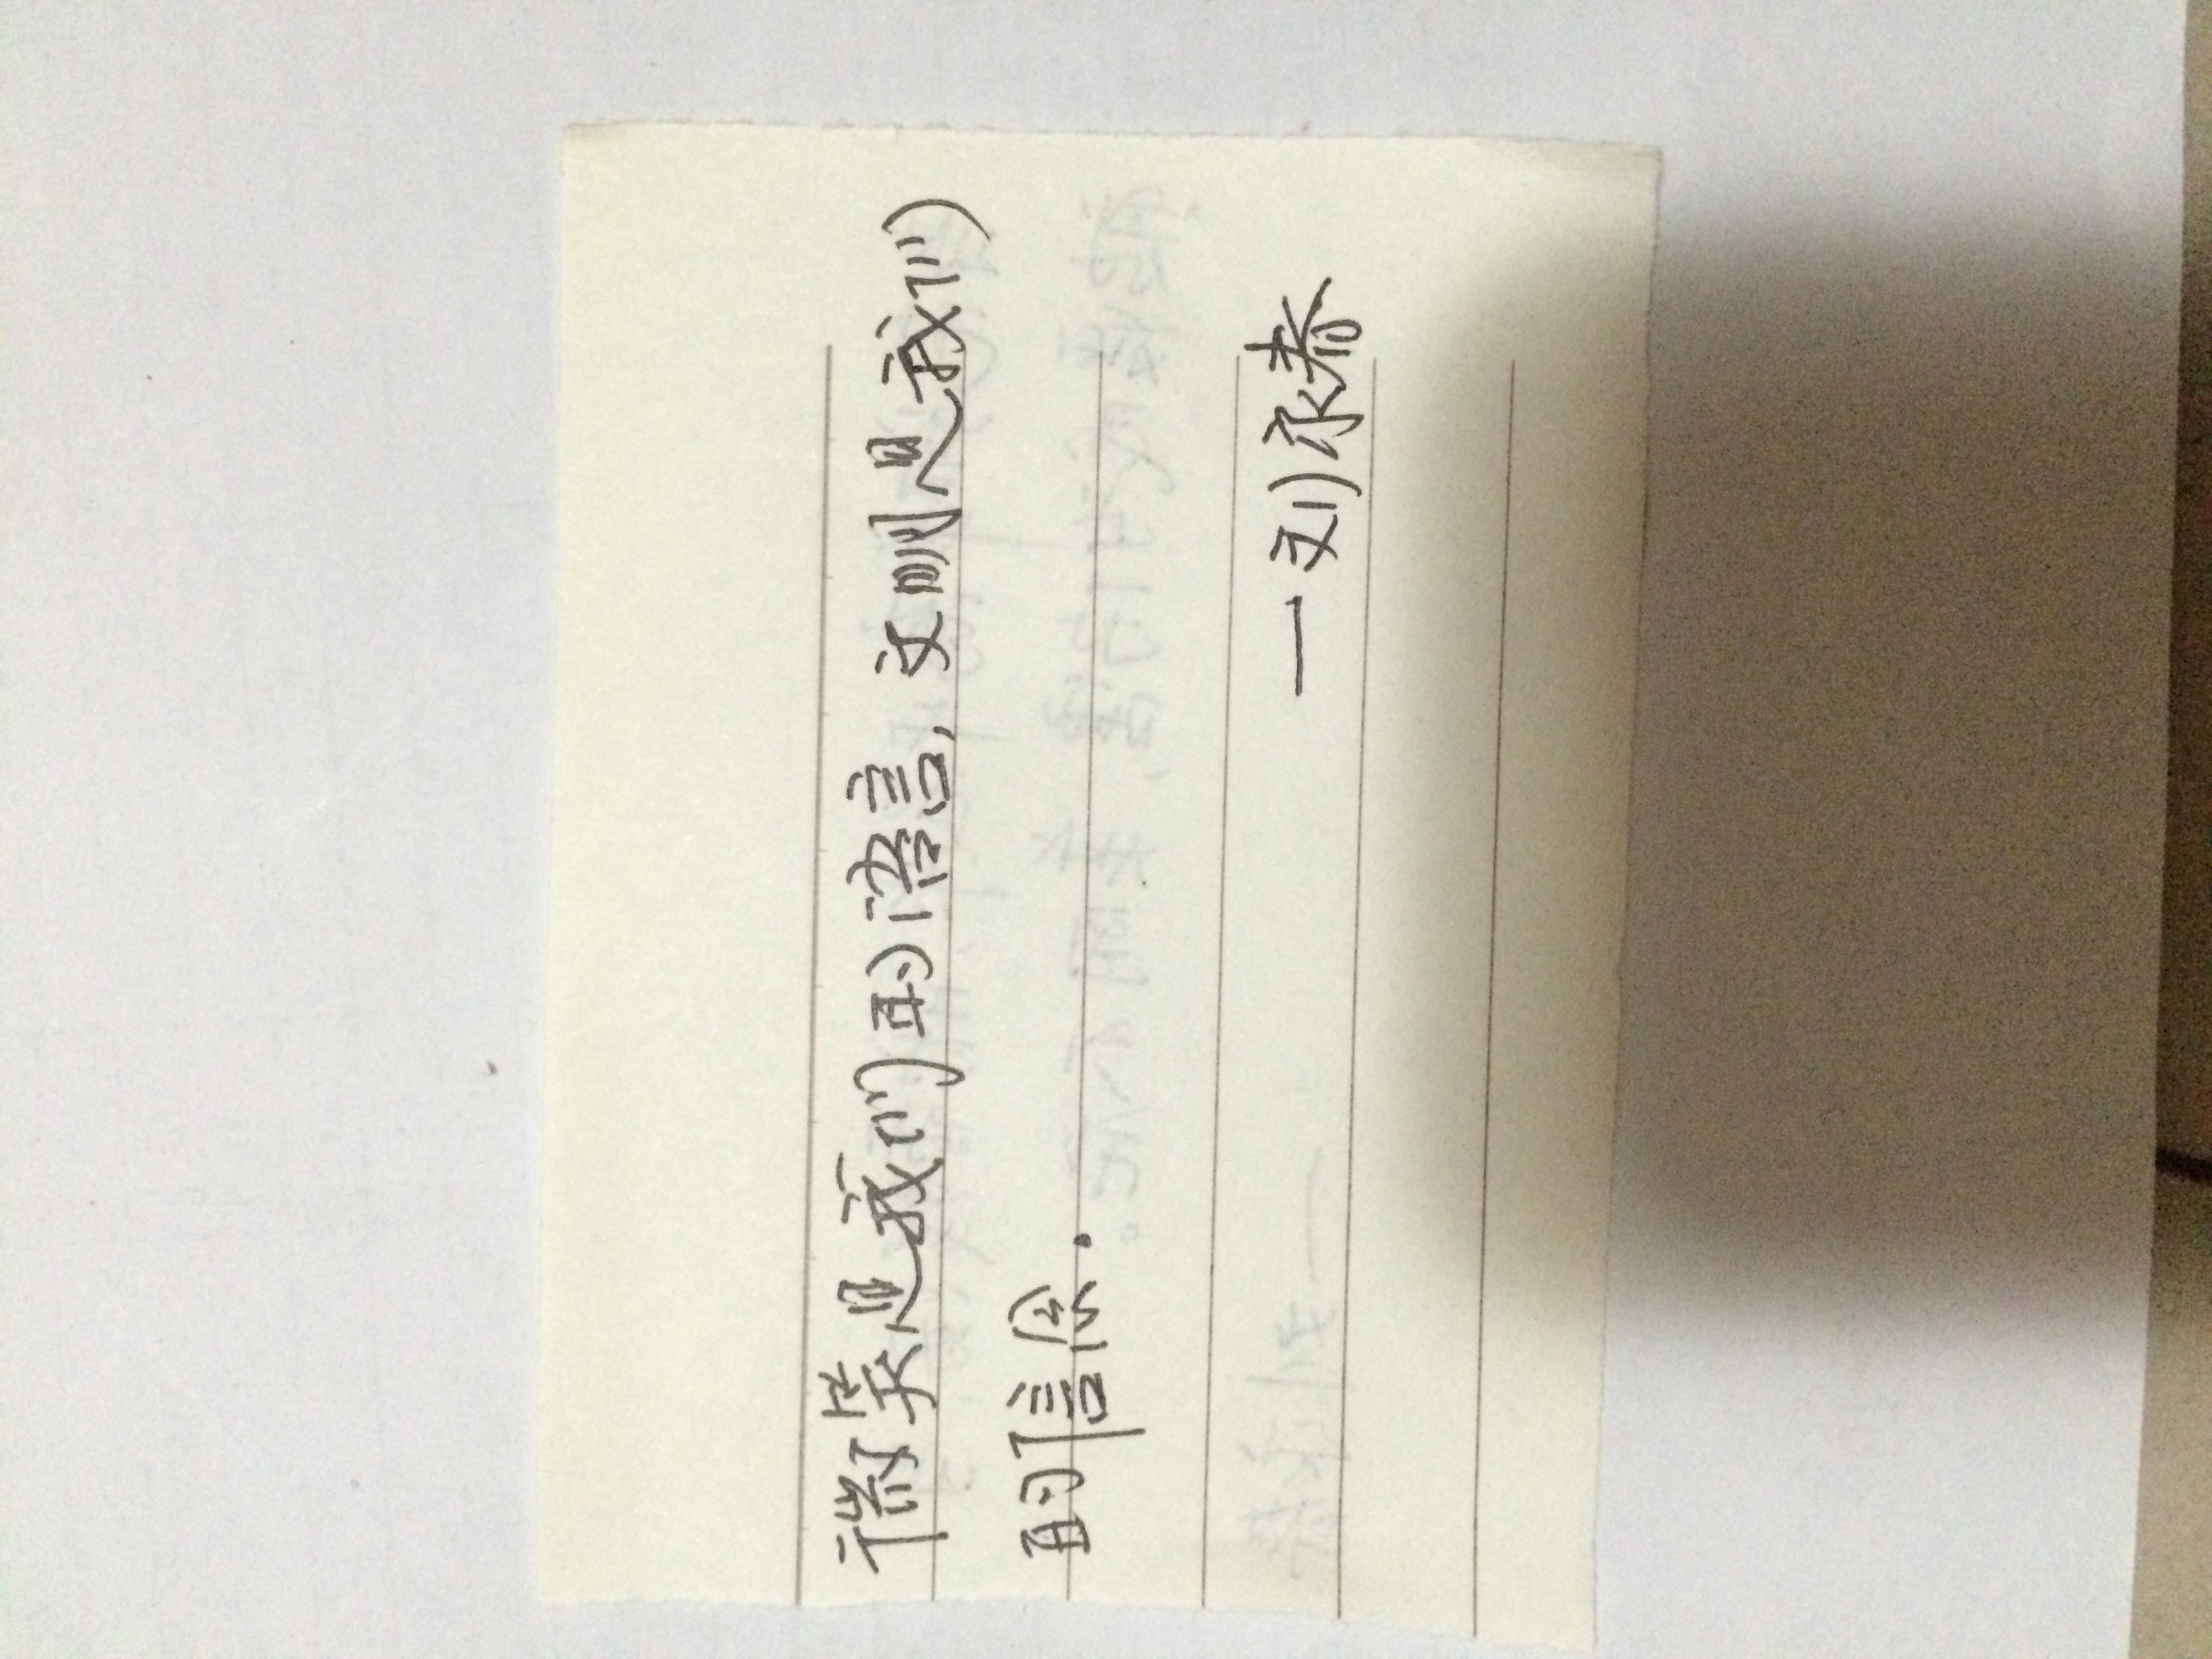 微笑是我们的语言,文明是我们
的信念.
一刘永春